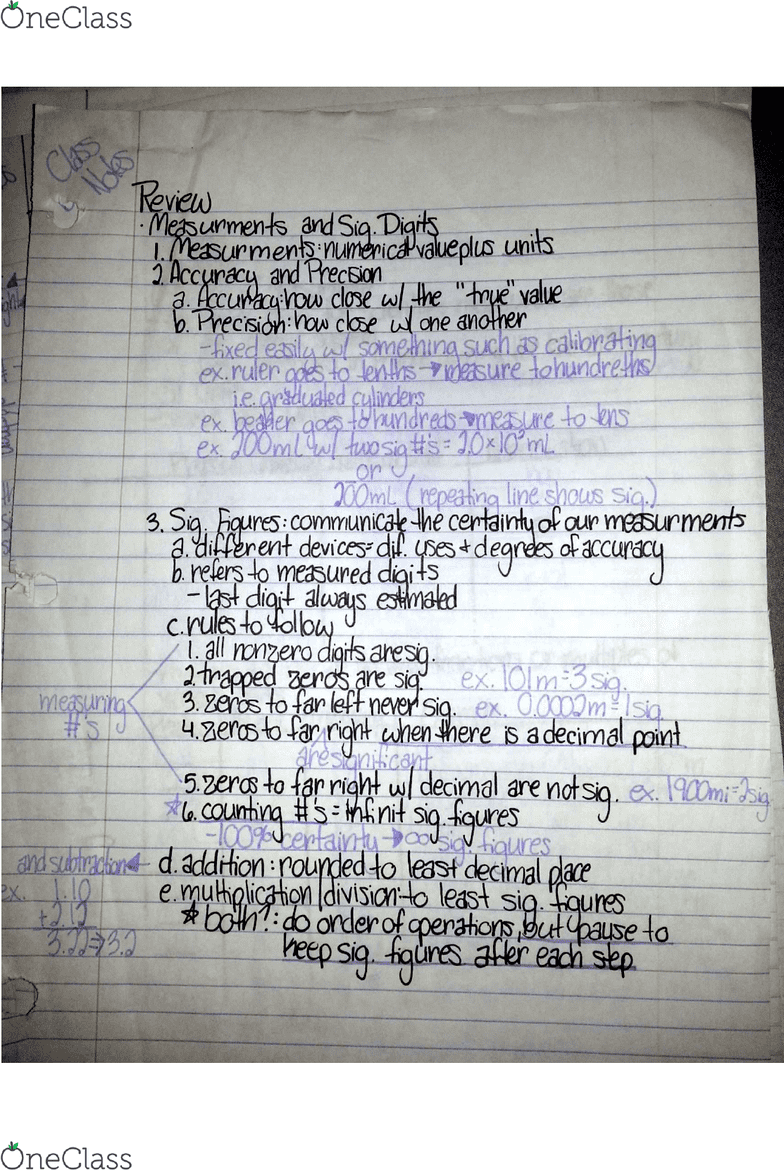 OneClass
Class
Notes
Review
· Measurments and Sig. Digits
1. Measurments: numerical value plus units
2. Accuracy and Precision
a. Accuracy: how close w/ the "true" value
b. Precision: how close w/ one another
-fixed easily w/ something such as calibrating
ex. ruler goes to tenths → measure to hundreths
i.e. graduated cylinders
ex. beaker goes to hundreds → measure to tens
ex. 200mL w/ two sig #'s = 2.0×10² mL
or
200mL (repeating line shows sig.)
3. Sig. Figures: communicate the certainty of our measurments
a. different devices = dif. uses + degrees of accuracy
b. refers to measured digits
- last digit always estimated
c. rules to follow
1. all nonzero digits are sig.
2. trapped zeros are sig. ex. 101m = 3 sig.
measuring #'s
3. zeros to far left never sig. ex. 0.0002m = 1 sig
4. zeros to far right when there is a decimal point
are significant
5. zeros to far right w/ decimal are not sig. ex. 1900mi = 2sig
*6. counting #'s = infinit sig. figures
-100% certainty → ∞ sig. figures
and subtraction d. addition: rounded to least decimal place
ex. 1.10 e. multiplication/division: to least sig. figures
* both?: do order of operations, but pause to
3.22 → 3.2 keep sig. figures after each step
OneClass